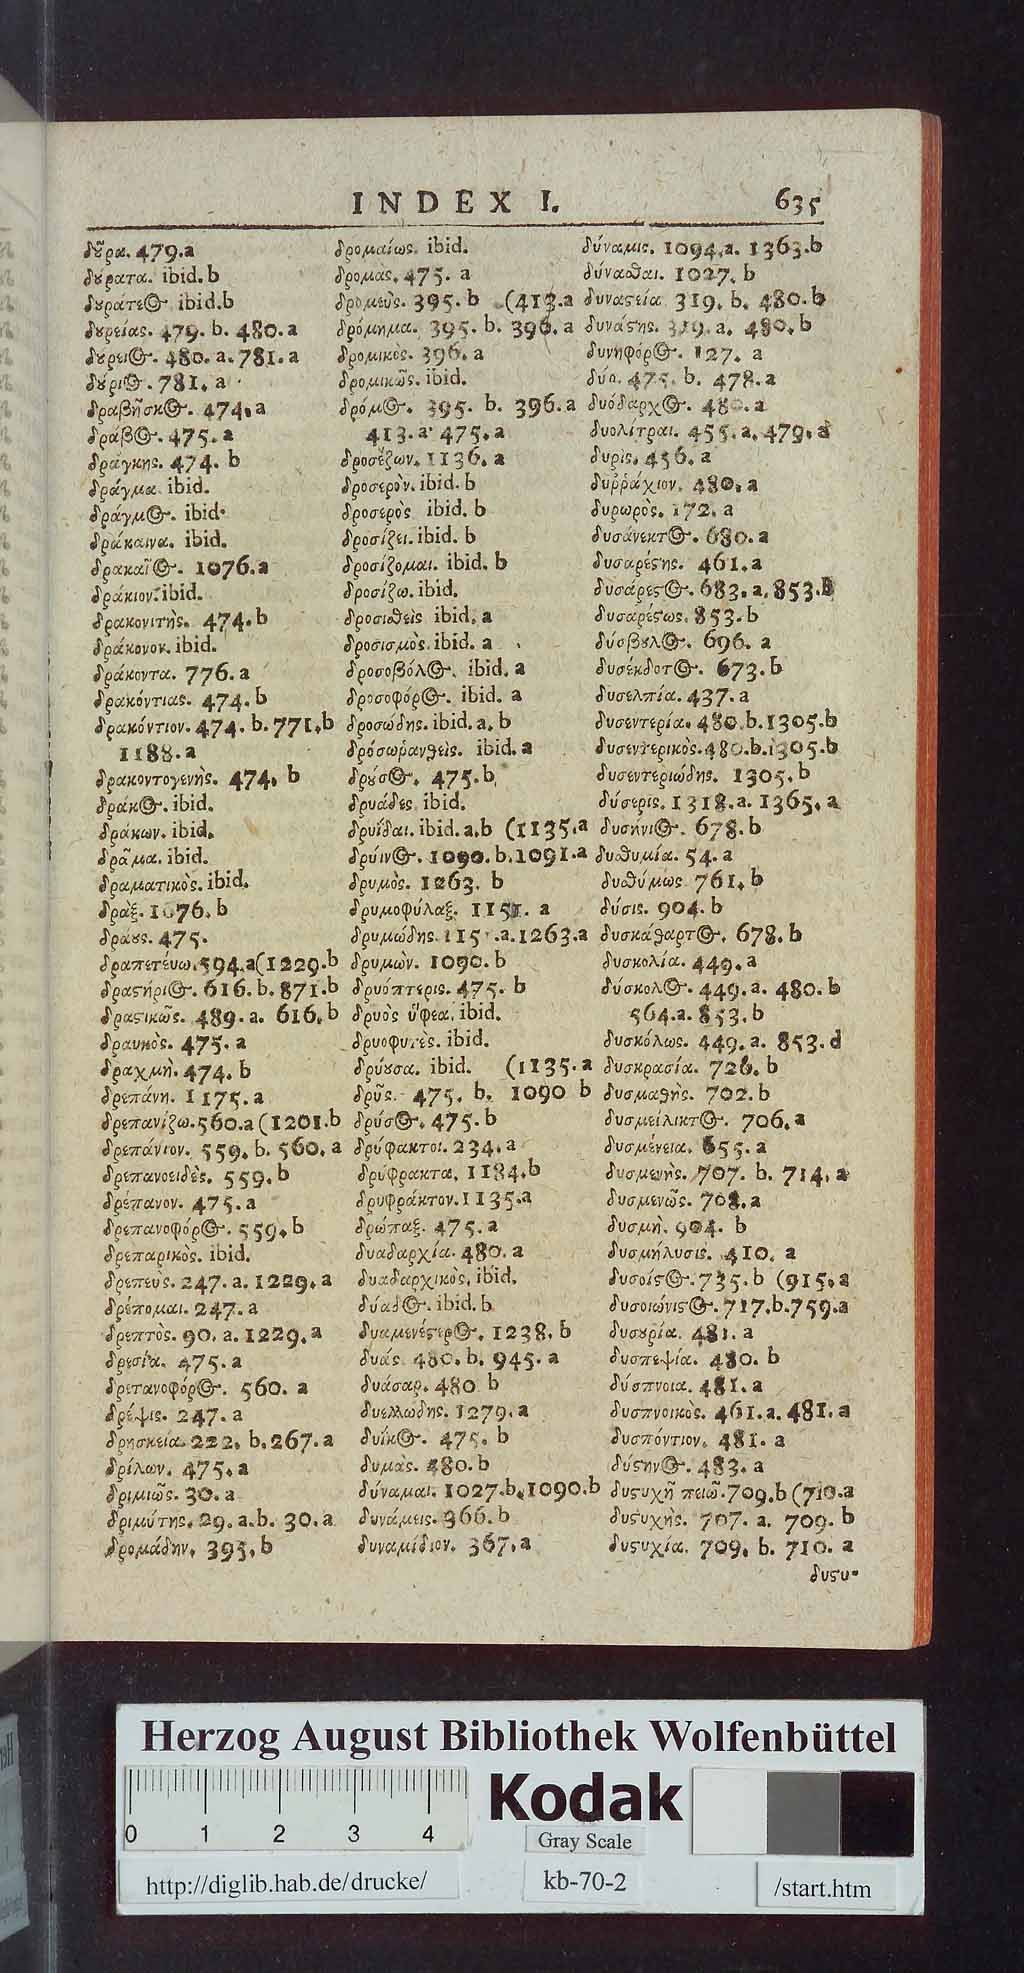 INDEX I. 635
δȣ̃ρα. 479.a
δȣρατα. ibid.b
δȣράτεος ibid.b
δȣρείας. 479. b. 480.a
δȣρειος. 480. a. 781. a
δȣ́ριος. 781. a
δραβῆσκος. 474. a
δράβος. 475. a
δράγκης. 474. b
δράγμα. ibid.
δράγμος. ibid.
δράκαινα. ibid.
δρακαῖος. 1076.a
δράκιον. ibid.
δρακονιτὴς. 474.b
δράκονον. ibid.
δράκοντα. 776. a
δρακόντιας. 474. b
δρακόντιον. 474. b. 771. b
1188. a
δρακοντογενὴς. 474. b
δράκος. ibid.
δράκων. ibid.
δρᾶμα. ibid.
δραματικὸς. ibid.
δρὰξ. 1076. b
δράȣς. 475.
δραπετέυω. 594.a (1229.b
δραςήριος. 616. b. 871. b
δραςικῶς. 489. a. 616. b
δραυκὸς. 475. a
δραχμὴ. 474. b
δρεπάνη. 1175. a
δρεπανίζω. 560.a (1201.b
δρεπάνιον. 559. b. 560. a
δρεπανοειδὲς. 559. b
δρέπανον. 475. a
δρεπανοφόρος. 559. b
δρεπαρικὸς. ibid.
δρεπεὺς. 247. a. 1229. a
δρέπομαι. 247. a
δρεπτὸς. 90. a. 1229. a
δρεσία. 475. a
δρετανοφόρος. 560. a
δρέψις. 247. a
δρησκεία. 222. b. 267. a
δρίλων. 475. a
δριμιῶς. 30. a
δριμύτης. 29. a.b. 30. a
δρομάδην. 395. b
δρομαίως. ibid.
δρομας. 475. a
δρομεὺς. 395. b (413.a
δρόμημα. 395. b. 396. a
δρομικὸς. 396. a
δρομικῶς. ibid.
δρόμος. 395. b. 396. a
413. a. 475. a
δροσίζων. 1136. a
δροσερὸν. ibid. b
δροσερὸς ibid. b
δροσίζει. ibid. b
δροσίζομαι. ibid. b
δροσίζω. ibid.
δροσιθεὶς ibid. a
δροσισμὸς. ibid. a
δροσοβόλος. ibid. a
δροσοφόρος. ibid. a
δροσώδης. ibid. a. b
δρόσωρανθεὶς. ibid. a
δρȣ́σος. 475. b
δρυάδες ibid.
δρυΐδαι. ibid. a.b (1135.a
δρύινος. 1090. b. 1091. a
δρυμὸς. 1263. b
δρυμοφύλαξ. 1151. a
δρυμώδης. 115 .a. 1263. a
δρυμὼν. 1090. b
δρυόπτερις. 475. b
δρυὸς ὕφεα. ibid.
δρυοφυτὲς. ibid.
δρύȣσα. ibid. (1135.a
δρῦς. 475. b. 1090 b
δρύσος. 475. b
δρύφακτοι. 234. a
δρύφρακτα. 1184. b
δρυφράκτον. 1135. a
δρώπαξ. 475. a
δυαδαρχία. 480. a
δυαδαρχικὸς. ibid.
δύαδος. ibid. b
δυαμενέςερος. 1238. b
δυάς. 480. b. 945. a
δυάσαρ. 480 b
δυελλώδης. 1279. a
δυΐκος. 475. b
δυμὰς. 480. b
δύναμαι. 1027. b. 1090. b
δυνάμεις. 366. b
δυναμίδιον. 367. a
δύναμις. 1094. a. 1363. b
δύναθαι. 1027. b
δυναςεία 319. b. 480. b
δυνάςης. 319. a. 480. b
δυνηφόρος. 127. a
δύο. 475. b. 478. a
δυόδαρχος. 480. a
δυολίτραι. 455. a. 479. a
δυρὶς. 456. a
δυῤῥάχιον. 480. a
δυρωρὸς. 172. a
δυσάνεκτος. 680. a
δυσαρέςης. 461. a
δυσάρεςος. 683. a. 853. b
δυσαρέςως. 853. b
δύσβȣλος. 696. a
δυσέκδοτος. 673. b
δυσελπία. 437. a
δυσεντερία. 480. b. 1305. b
δυσεντερικὸς. 480. b. 1305. b
δυσεντεριώδης. 1305. b
δύσερις. 1318. a. 1365. a
δυσήνιος. 678. b
δυθυμία. 54. a
δυθύμως 761. b
δύσις. 904. b
δυσκάθαρτος. 678. b
δυσκολία. 449. a
δύσκολος. 449. a. 480. b
564. a. 853. b
δυσκόλως. 449. a. 853. d
δυσκρασία. 726. b
δυσμαθὴς. 702. b
δυσμείλικτος. 706. a
δυσμένεια. 655. a
δυσμενὴς. 707. b. 714. a
δυσμενῶς. 708. a
δυσμὴ. 904. b
δυσμήλυσις. 410. a
δυσοίςος. 735. b (915. a
δυσοιώνιςος. 717. b. 759. a
δυσȣρία. 481. a
δυσπεψία. 480. b
δύσπνοια. 481. a
δυσπνοικὸς. 461. a. 481. a
δυσπόντιον. 481. a
δύςηνος. 483. a
δυςυχῆ πειῶ. 709. b (710. a
δυςυχὴς. 707. a. 709. b
δυςυχία. 709. b. 710. a
δυςυ-
Herzog August Bibliothek Wolfenbüttel
0 1 2 3 4
Kodak
Gray Scale
http://diglib.hab.de/drucke/
kb-70-2
/start.htm